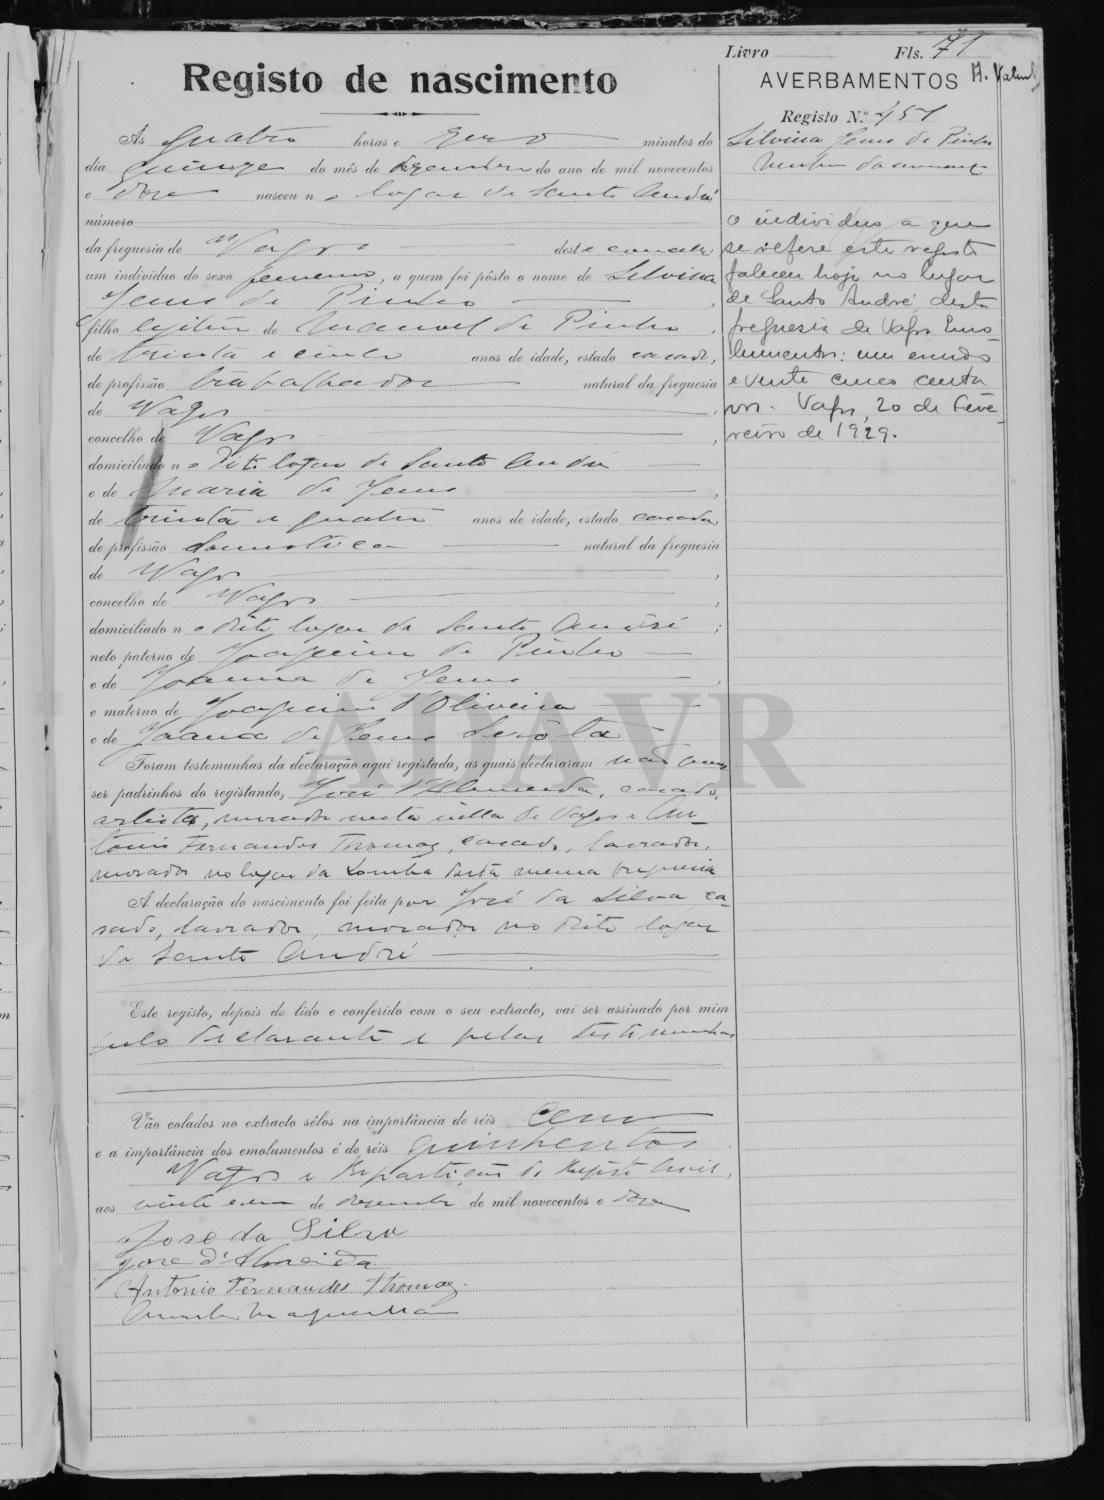 Livro Fls. 71
Registo de nascimento
As quatro horas e zero minutos do
dia quinze do mês de dezembro do ano de mil novecentos
e doze nasceu no logar de Santo André
número
da freguesia de Vagos deste concelho
um indivíduo do sexo femenino, a quem foi pôsto o nome de Silvina
Jesus de Pinho,
filho legitimo de Manoel de Pinho,
de trinta e cinco anos de idade, estado casado,
de profissão trabalhador natural da freguesia
de Vagos,
concelho de Vagos,
domiciliado no dito logar de Santo André
e de Maria de Jesus,
de trinta e quatro anos de idade, estado casada
de profissão domestica natural da freguesia
de Vagos,
concelho de Vagos,
domiciliado no dito logar de Santo André;
neto paterno de Joaquim de Pinho
e de Joanna de Jesus,
e materno de Joaquim d'Oliveira
e de Joana de Jesus
Foram testemunhas da declaração aqui registada, as quais declararam não
ser padrinhos do registando, José d'Almeida, casado,
artista, morador nesta villa de Vagos e An-
tonio Fernandes Thomaz, casado, lavrador,
morador no logar da Lomba desta mesma freguesia
A declaração do nascimento foi feita por José da Silva, ca-
sado, lavrador, morador no dito logar
de Santo André
Este registo, depois de lido e conferido com o seu extracto, vai ser assinado por mim
pelo declarante e pelas testemunhas
Vão colados no extracto sêlos na importância de réis cem
e a importância dos emolumentos é de réis quinhentos
Vagos e Repartição do Registo Civil,
aos vinte e um de dezembro de mil novecentos e doze
Jose da Silva
Jose d'Almeida
Antonio Fernandes Thomaz.
AVERBAMENTOS
Registo N.º 451
Silvina Jesus de Pinho
O individuo a que
se refere este registo
faleceu hoje no lugar
de Santo André, desta
freguesia de Vagos. Emo-
lumentos: um escudo
e vinte cinco centa
vos. Vagos, 20 de Feve-
reiro de 1929.
ADAVR